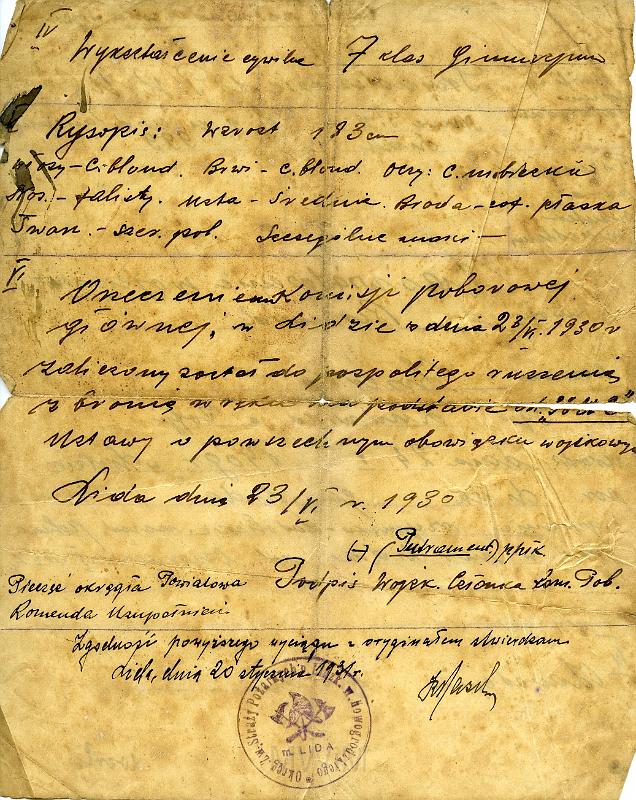 IV
Wykształcenie cywilne 7 klas Gimnazjum
V
Rysopis: wzrost 183 cm
włosy - c. blond. Brwi - c. blond. Oczy: c. niebieskie
nos. - falisty. usta - średnie. Broda - płaska
Twarz. - szcz. poł. Szczególne znaki -
VI
Orzeczeniem Komisji poborowej
głównej, w Lidzie z dnia 23/VI. 1930 r
zaliczony został do pospolitego ruszenia
z bronią w ręku na podstawie
Ustawy o powszechnym obowiązku wojskowym
Lida dnia 23/VI r. 1930
(-) (Putrament) ppłk
Pieczęć okrągła Powiatowa Podpis Wojsk. Członka Kom. Pob.
Komenda Uzupełnień.
Zgodność powyższego wyciągu z oryginałem stwierdzam
Lida, dnia 20 stycznia 1931 r.
Okręg. Zw. Straży Poż. w. Nowogródzkiego
m. LIDA